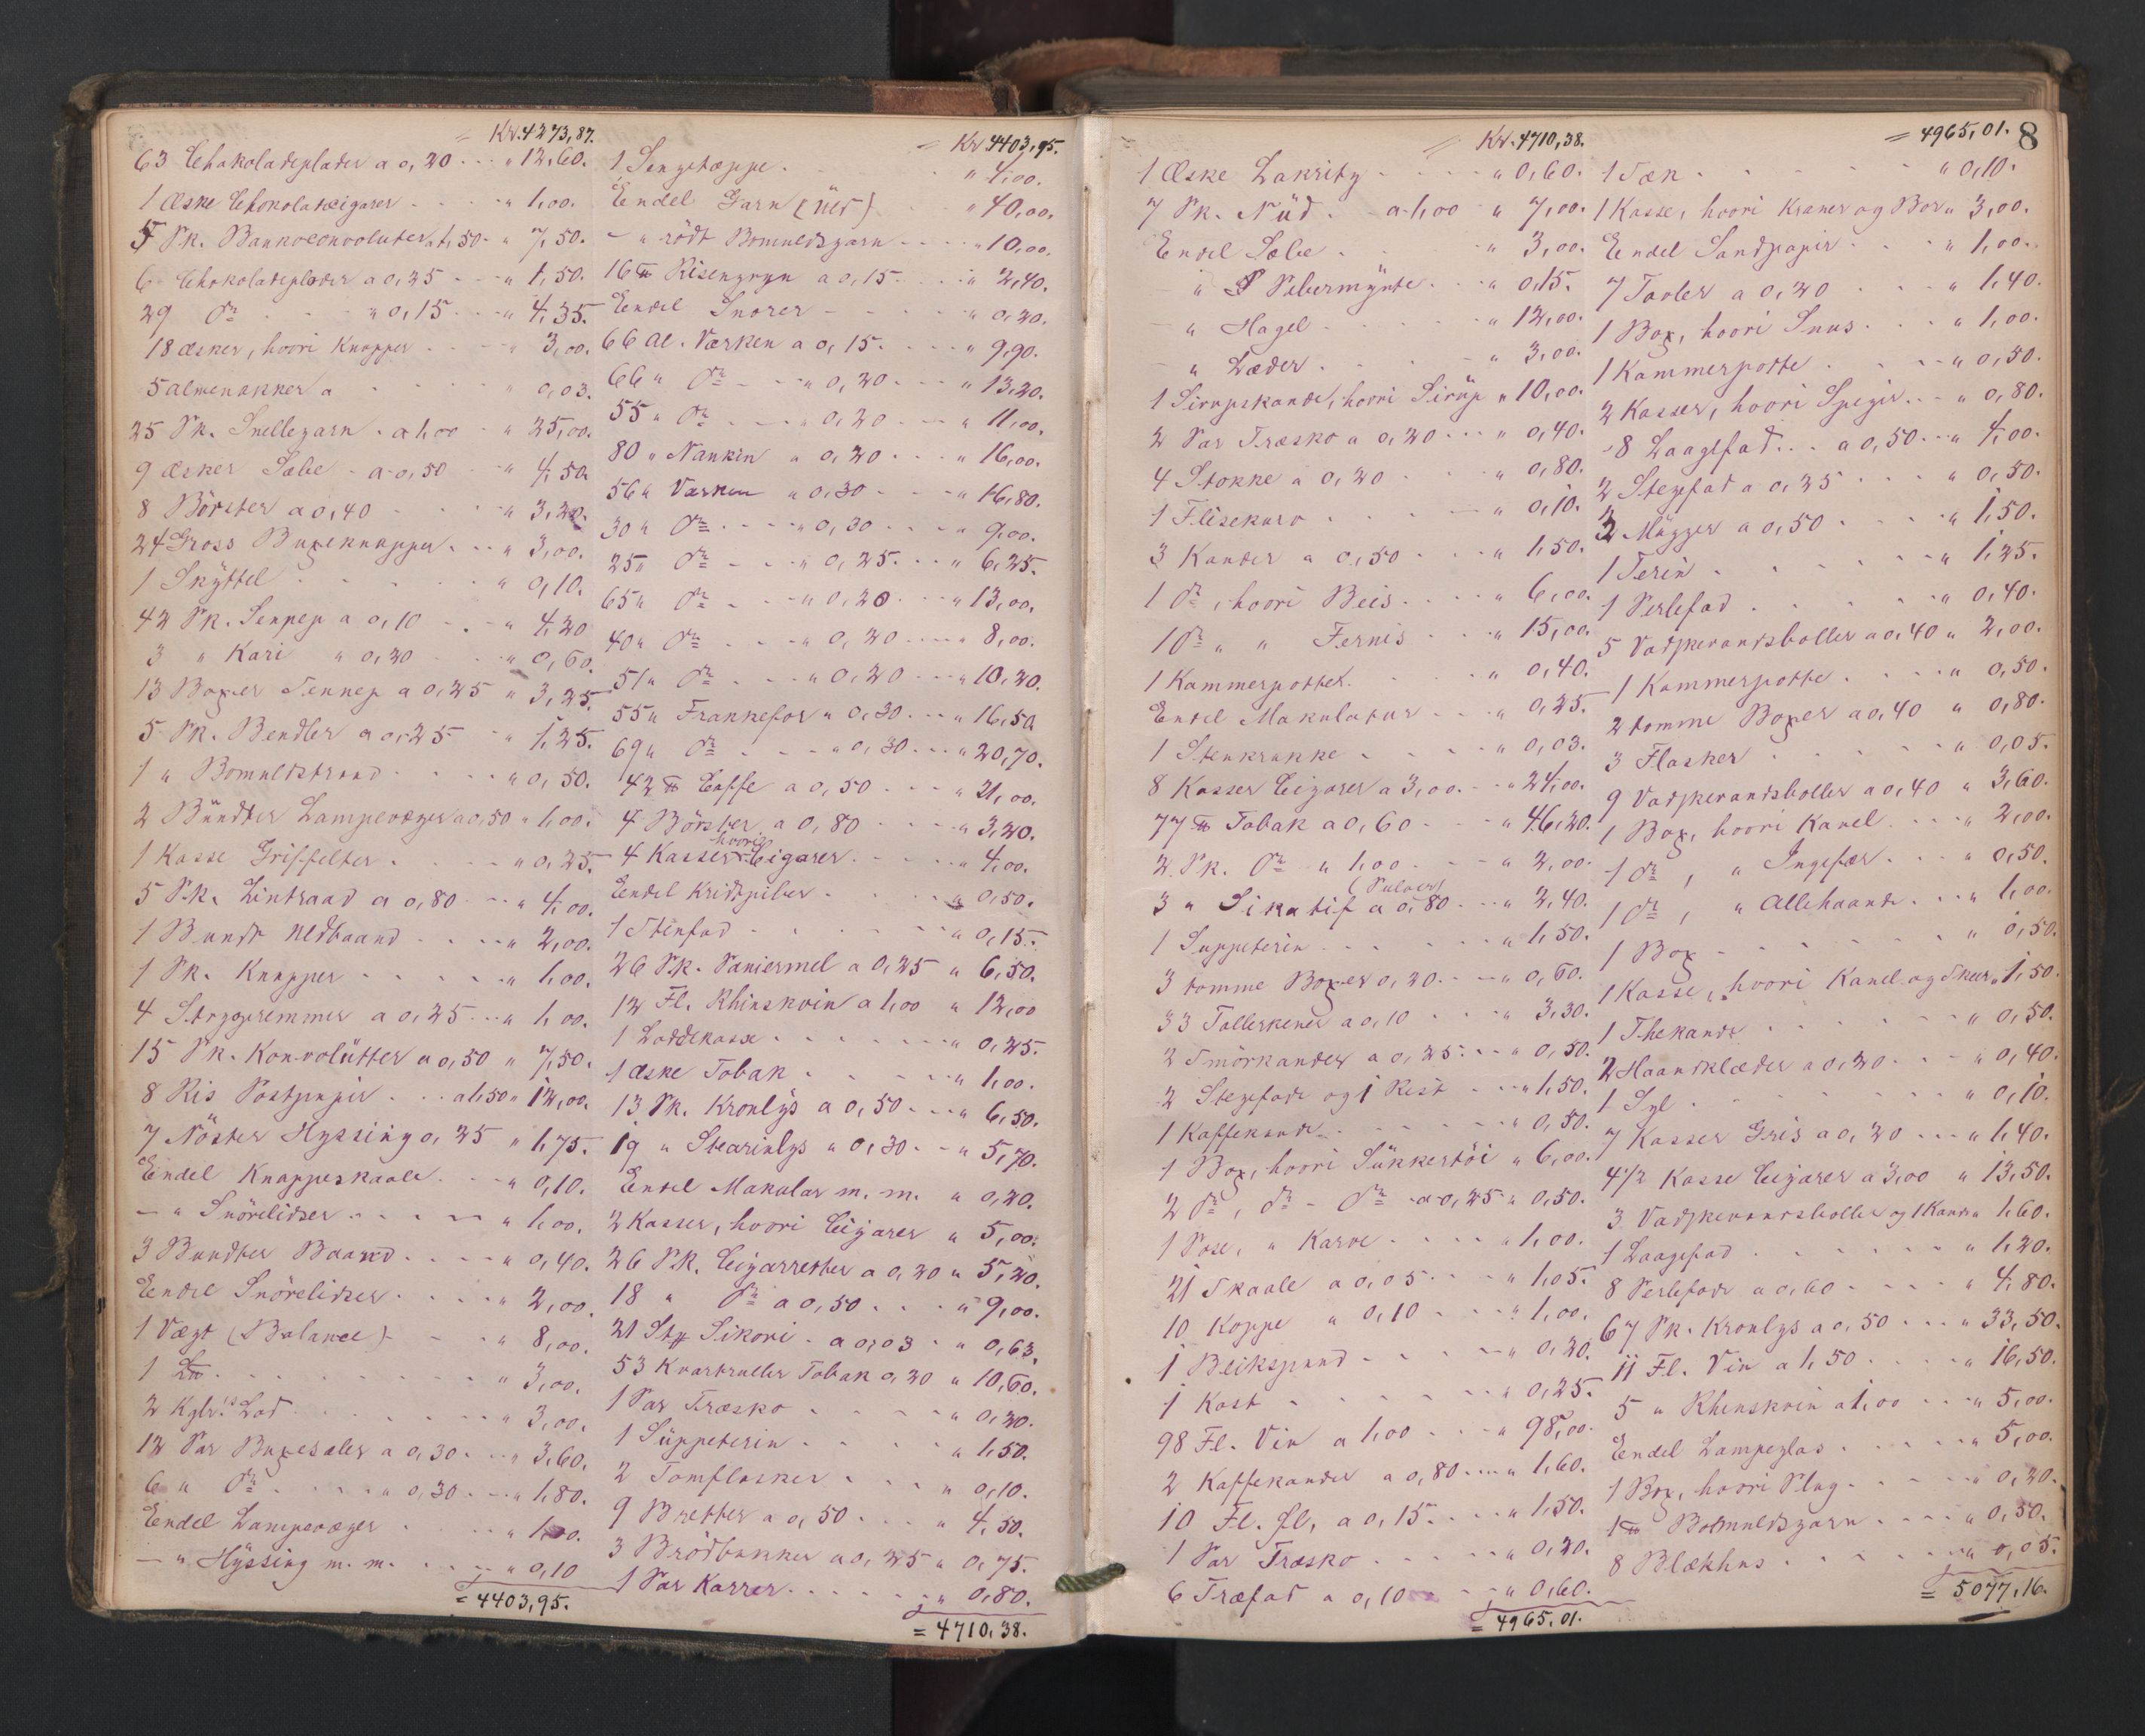 = Kr. 4273,87.
63 Chokoladeplader a 0,20 . . . " 12,60.
1 Æske Chokoladeigarer . . . " 1,00.
5 Pk. Bankoconvoluter a 1,50 - " 7,50.
6 Chokoladeplader a 0,25 . . . " 1,50.
29 Do . . . " 0,15 . . . " 4,35.
18 Æsker, hvori Knapper . . . " 3,00.
5 Almenakker a . . . " 0,03.
25 Pk. Snellegarn . a 1,00 - " 25,00.
9 Æsker Sæbe - a 0,50 " 4,50
8 Börster a 0,40 . . . " 3,20.
24 Gross Buxeknapper . . . " 3,00.
1 Skÿttel . . . " 0,10.
42 Pk. Sennep a 0,10 . . . " 4,20
3 " Kari " 0,20 . . . " 0,60.
13 Boxer Sennep a 0,25 " 3,25.
5 Pk. Bendler a 0,25 " 1,25.
1 " Bomuldstraad . . . " 0,50.
2 Bündter Lampevæger a 0,50 " 1,00.
1 Kasse Griffelter . . . " 0,25.
5 Pk. Lintraad a 0,80 . . . " 4,00.
1 Bundt Uldbaand . . . " 2,00.
1 Pk. Knapper . . . " 1,00.
4 Strygeremmer a 0,25 . . . " 1,00.
15 Pk. Konvolütter a 0,50 " 7,50.
8 Ris Postpapir . . . a 1,50 " 12,00.
7 Nöster Hyssing 0,25 " 1,75.
Endel Knappeskaale . . . " 0,10.
— " Snörelidser . . . " 1,00.
3 Bundter Baand . . . " 0,40.
Endel Snörelidser . . . " 2,00.
1 Vægt (Balance) - - " 8,00.
1 Do . . . " 3,00.
2 Kglr. Lod . . . " 3,00.
12 Par Buxesæler a 0,30 . . . " 3,60.
6 " Do . . . " 0,30 . . . " 1,80.
Endel Lampevæger . . . " 1,00.
— " Hÿssing m. m. . . . " 0,10
= 4403,95.
= Kr. 4403,95.
1 Sengetæppe . . . " 4,00.
Endel Garn (Uld) . . . " 40,00.
— " rödt Bomuldsgarn . . . " 10,00.
16 ℔ Risengryn a 0,15 . . . " 2,40.
Endel Snorer . . . " 0,20.
66 Al. Værken a 0,15 . . . " 9,90.
66 " Do . . . " 0,20 . . . " 13,20.
55 " Do . . . " 0,20 . . . " 11,00.
80 " Nankin " 0,20 . . . " 16,00.
56 " Værken " 0,30 . . . " 16,80.
30 " Do . . . " 0,30 . . . " 9,00.
25 " Do . . . " 0,25 . . . " 6,25.
65 " Do . . . " 0,20 . . . " 13,00.
40 " Do . . . " 0,20 . . . " 8,00.
51 " Do . . . " 0,20 . . . " 10,20.
55 " Frankefor " 0,30 . . . " 16,50
69 " Do . . . " 0,30 . . . " 20,70.
42 ℔ Caffe a 0,50 . . . " 21,00.
4 Börster a 0,80 . . . " 3,20.
4 Kasser hvori Cigarer . . . " 4,00.
Endel Kridtpiber . . . " 0,50.
1 Stenfad . . . " 0,15.
26 Pk. Paniermel a 0,25 " 6,50.
12 Fl. Rhinskvin a 1,00 " 12,00
1 Loddekasse . . . " 0,25.
1 Æske Tobak . . . " 1,00.
13 Pk. Kronlÿs a 0,50 . . . " 6,50.
19 " Stearinlys " 0,30 . . . " 5,70.
Endel Makular m. m. " 0,20.
2 Kasser, hvori Cigarer " 5,00.
26 Pk. Cigarretter a 0,20 " 5,20.
18 " Do a 0,50 . . . " 9,00.
21 Stk Sikori . a 0,03 . " 0,63.
53 Kvartruller Tobak 0,20 " 10,60.
1 Par Træsko . . . " 0,20.
1 Süppeterin . . . " 1,50.
2 Tomflasker . . . " 0,10.
9 Bretter a 0,50 . . . " 4,50.
3 Brödbakker a 0,25 " 0,75.
1 Par Karrer . . . " 0,80.
= 4710,38.
= Kr. 4710,38.
1 Æske Lakrity . . . " 0,60.
7 Pk. Nüd . a 1,00 " 7,00.
Endel Sæbe . . . " 3,00.
" Pebermÿnte . . . " 0,15.
" Hagel . . . " 12,00.
" Læder . . . " 3,00.
1 Sirupskande, hvori Sirüp " 10,00.
2 Par Træsko a 0,20 . . . " 0,40.
4 Stokke a 0,20 . . . " 0,80.
1 Flisekurv . . . " 0,10.
3 Kander a 0,50 . . . " 1,50.
1 Do, hvori Beis . . . " 6,00.
1 Do " " Fernis . . . " 15,00.
1 Kammerpotte . . . " 0,40.
Endel Makulatur . . . " 0,25.
1 Stenkrukke . . . " 0,03.
8 Kasser Cigarer a 3,00 . . . " 24,00.
77 ℔ Tobak a 0,60 . . . " 46,20.
2 Pk. Do " 1,00 . . . " 2,00.
3 " Sikatif (Pulver) a 0,80 . . . " 2,40.
1 Suppeterin . . . " 1,50.
3 tomme Boxer 0,20 . . . " 0,60.
33 Tallerkener a 0,10 . . . " 3,30.
2 Smörkander a 0,25 . . . " 0,50.
2 Stegefade og 1 Rist . . . " 1,50.
1 Kaffekande . . . " 0,50.
1 Box, hvori Sükkertöi " 6,00.
2 Do, Do - Do a 0,25 " 0,50.
1 Pose, " Karve . . . " 1,00.
21 Skaale a 0,05 . . . " 1,05.
10 Koppe " 0,10 . . . " 1,00.
1 Beikspand . . . " 0,20.
1 Kost . . . " 0,25.
98 Fl. Vin a 1,00 . . . " 98,00.
2 Kaffekander a 0,80 . . . " 1,60.
10 Fl. Øl, a 0,15 . . . " 1,50.
1 Par Træsko . . . " 0,20.
6 Træfad a 0,10 . . . " 0,60.
= 4965,01.
= 4965,01. 8
1 Tæk . . . " 0,10.
1 Kasse, hvori Kraner og Bor " 3,00.
Endel Sandpapir . . . " 1,00.
7 Tavler a 0,20 . . . " 1,40.
1 Box, hvori Snus . . . " 1,00.
1 Kammerpotte . . . " 0,50.
2 Kasser, hvori Speger . . . " 0,80.
8 Laagefad . . . a 0,50 . . . " 4,00.
2 Stegefad a 0,25 . . . " 0,50.
3 Mügger a 0,50 . . . " 1,50.
1 Terin . . . " 1,25.
1 Perlefad . . . " 0,40.
5 Vadskevandsboller a 0,40 " 2,00.
1 Kammerpotte . . . " 0,50.
2 tomme Boxer a 0,40 " 0,80.
3 Flasker . . . " 0,05.
9 Vadskevandsboller a 0,40 " 3,60.
1 Box, hvori Kanel . . . " 2,00.
1 Do, " Ingefær . . . " 0,50.
1 Do, " Allehaande . . . " 1,00.
1 Box . . . " 0,50.
1 Kasse, hvori Kanel og Skeer " 1,50.
1 Thekande . . . " 0,50.
2 Haandklæder a 0,20 . . . " 0,40.
1 Syl . . . " 0,10.
7 Kasser Gris a 0,20 . . . " 1,40.
4 1/2 Kasse Cigarer a 3,00 " 13,50.
3 Vadskevandsboller og 1 Kande " 1,60.
1 Laagefad . . . " 1,20.
8 Perlefade a 0,60 . . . " 4,80.
67 Pk. Kronlys a 0,50 . . . " 33,50.
11 Fl. Vin a 1,50 . . . " 16,50.
5 " Rhinskvin a 1,00 . . . " 5,00.
Endel Lampeglas . . . " 5,00.
1 Box, hvori Plug . . . " 0,20.
1 ℔ Bomuldsgarn . . . " 0,50.
8 Blækhus . . . " 0,05.
= 5077,16.